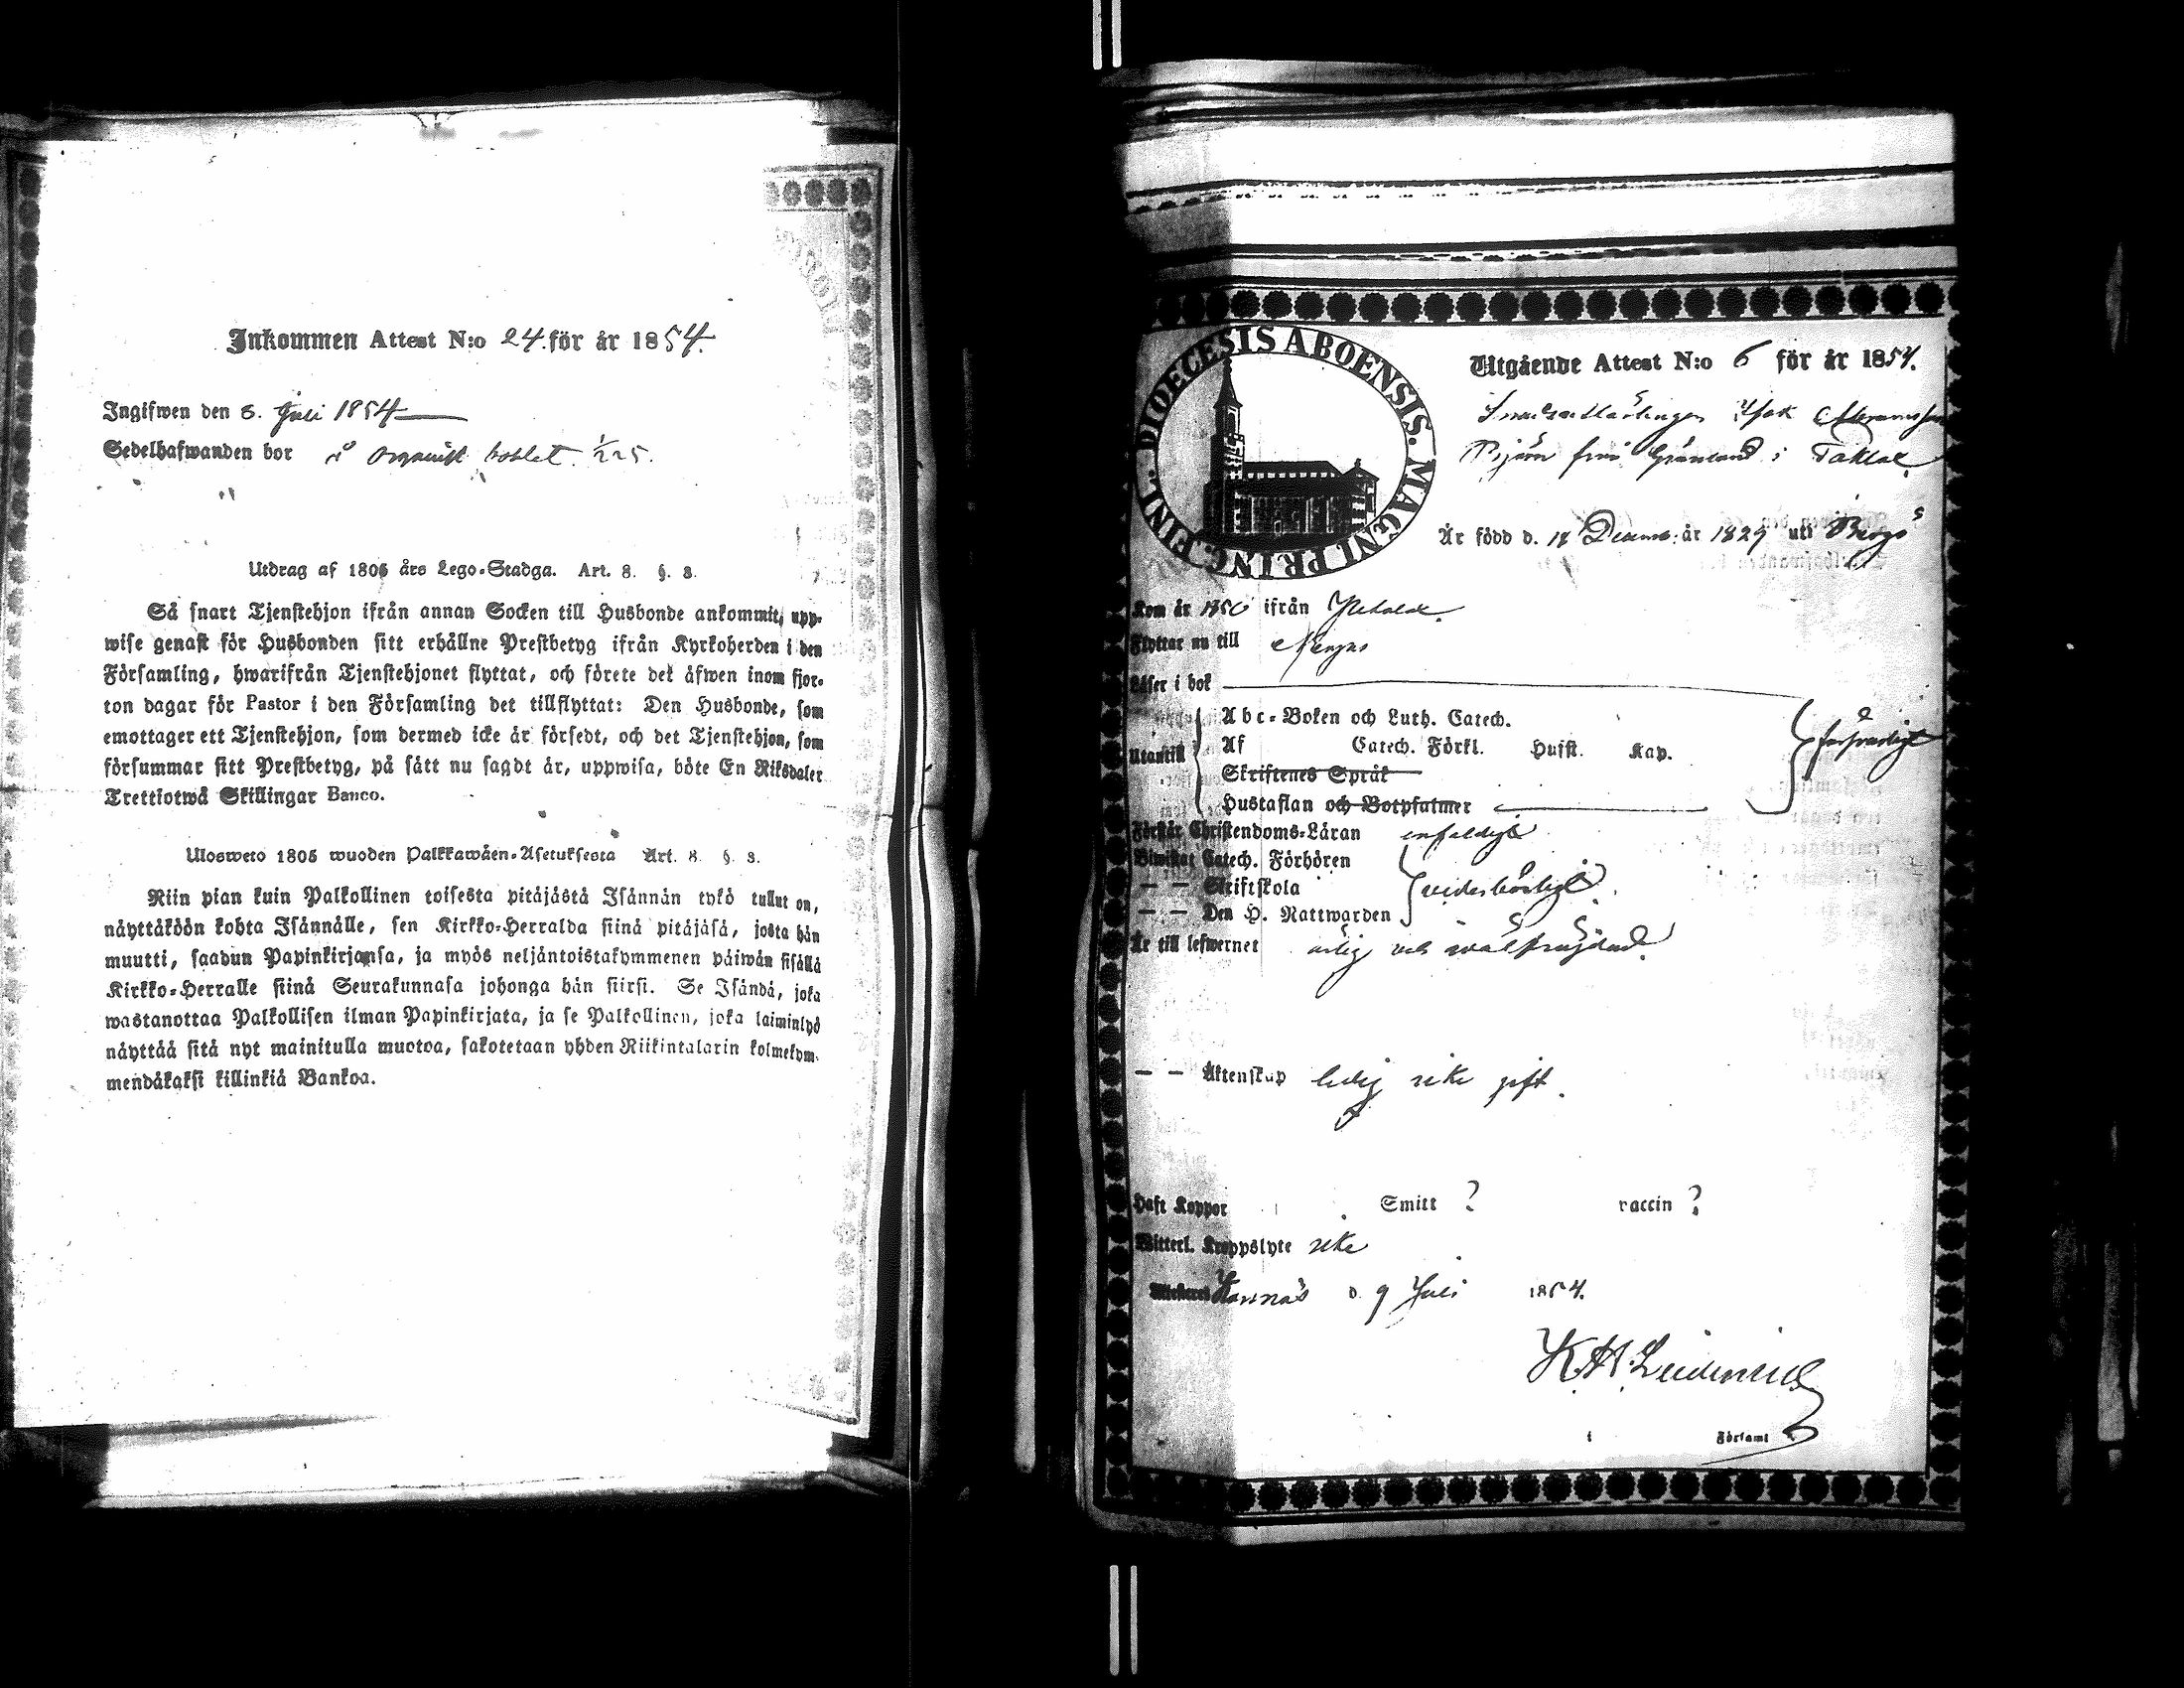 Inkommen Attest N:o 24. för år 1854.
Ingifwen den 8. Juli 1854
Sedelhafwanden bor å organist bohlet. 1/225.
Utdrag af 1805 års Lego-Stadga. Art. 8. §. 3.
Så snart Tjenstehjon ifrån annan Socken till Husbonde ankommit, upp-
wise genast för Husbonden sitt erhållne Prestbetyg ifrån Kyrkoherden i den
Församling, hwarifrån Tjenstehjonet flyttat, och förete det äfwen inom fjor-
ton dagar för Pastor i den Församling det tillflyttat: Den Husbonde, som
emottager ett Tjenstehjon, som dermed icke är försedt, och det Tjenstehjon, som
försummar sitt Prestbetyg, på sätt nu sagdt är, uppwisa, böte En Riksdaler
Trettiotwå Skillingar Banco.
Ulosweto 1805 wuoden Palkkawäen-Asetuksesta Art. 8. §. 3.
Niin pian kuin Palkollinen toisesta pitäjästä Isännän tykö tullut on,
näyttäköön kohta Isännälle, sen Kirkko-Herralda siinä pitäjäsä, josta hän
muutti, saadun Papinkirjansa, ja myös neljäntoistakymmenen päiwän sisällä
Kirkko-Herralle siinä Seurakunnasa johonga hän siirsi. Se Isändä, joka
wastanottaa Palkollisen ilman Papinkirjata, ja se Palkollinen, joka laiminlyö
näyttää sitä nyt mainitulla muotoa, sakotetaan yhden Riikintalarin kolmekym-
mendäkaksi killinkiä Bankoa.
DIOECESIS ABOENSIS. MAGNI PRINC. FINL.
Utgående Attest N:o 6 för år 1854.
Isak Abramsson
Björn från Grönland i Taklax
Är född d. 18 Decemb. år 1829 uti Bergö
Kom år 1850 ifrån
Flyttar nu till
Läser i bok
Utantill
Abc-Boken och Luth. Catech.
Af Catech. Förkl. Hufst. Kap.
försvarligt
Skriftenes Språk
Hustaflan och Botpsalmer
Förstår Christendoms-Läran enfaldigt
Biwistat Catech. Förhören
— — Skriftskola vederbörligt.
— — Den H. Nattwarden
Är till lefwernet ärlig och välfrägdad.
— — Äktenskap ledig icke gift.
Haft Koppor Smitt ? vaccin ?
Witterl. Kroppslyte icke
d. 9 Juli 1854.
i Församl